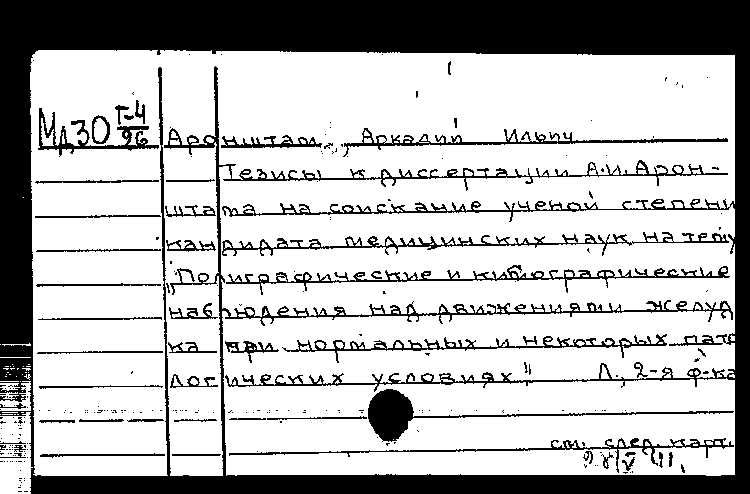 Мд30 Г-4/96
Аронштам, Аркадий Ильич
Тезисы к диссертации А.И. Арон-
штама на соискание ученой степени
кандидата медицинских наук на тему
„Полиграфические и кимографические
наблюдения над движениями желуд
ка при нормальных и некоторых пато
логических условиях" Л., 2-я ф-ка
см. след. карт.